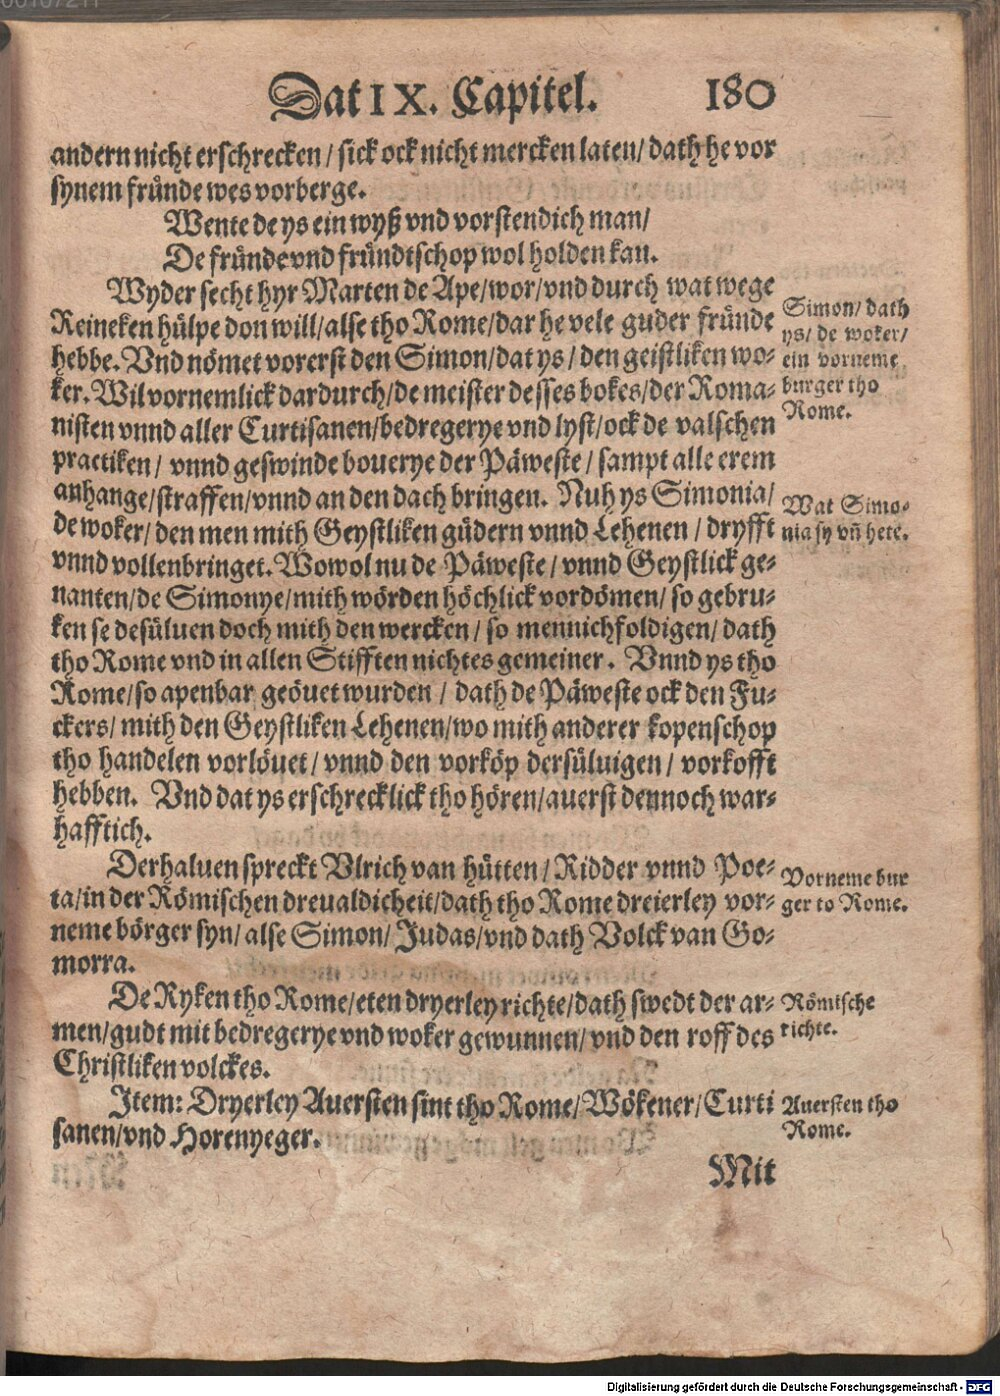 Dat IX. Capitel. 180
andern nicht erschrecken / sick ock nicht mercken laten / dath he vor
synem fründe wes vorberge.
Wente de ys ein wyß vnd vorstendich man /
De fründe vnd fründtschop wol holden kan.
Wyder secht hyr Marten de Ape / wor / vnd durch wat wege
Reineken hülpe don will / alse tho Rome / dar he vele guder fründe
hebbe. Vnd nömet vorerst den Simon / dat ys / den geistliken wo-
ker. Wil vornemlick dardurch / de meister desses bokes / der Roma-
nisten vnnd aller Curtisanen / bedregerye vnd lyst / ock de valschen
practiken / vnnd geswinde bouerye der Päweste / sampt alle erem
anhange / straffen / vnnd an den dach bringen. Nuh ys Simonia /
de woker / den men mith Geystliken güdern vnnd Lehenen / dryfft
vnnd vollenbringet. Wowol nu de Päweste / vnnd Geystlick ge-
nanten / de Simonye / mith wörden höchlick vordömen / so gebru-
ken se desüluen doch mith den wercken / so mennichfoldigen / dath
tho Rome vnd in allen Stifften nichtes gemeiner. Vnnd ys tho
Rome / so apenbar geöuet wurden / dath de Päweste ock den Fu-
ckers / mith den Geystliken Lehenen / wo mith anderer kopenschop
tho handelen vorlöuet / vnnd den vorköp dersüluigen / vorkofft
hebben. Vnd dat ys erschrecklick tho hören / auerst dennoch war-
hafftich.
Derhaluen spreckt Vlrich van Hütten / Ridder vnnd Poe-
ta / in der Römischen dreualdicheit / dath tho Rome dreierley vor-
neme börger syn / alse Simon / Judas / vnd dath Volck van Go-
morra.
De Ryken tho Rome / eten dryerley richte / dath swedt der ar-
men / gudt mit bedregerye vnd woker gewunnen / vnd den roff des
Christliken volckes.
Item: Dryerley Auersten sint tho Rome / Wökener / Curti
sanen / vnd Horenyeger.
Mit
Simon / dath
ys / de woker /
ein vorneme
burger tho
Rome.
Wat Simo-
nia sy vñ hete.
Vorneme bur
ger to Rome.
Römische
richte.
Auersten tho
Rome.
Digitalisierung gefördert durch die Deutsche Forschungsgemeinschaft - DFG